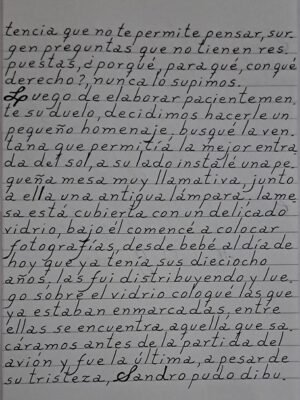 tencia que no te permite pensar, sur.
gen preguntas que no tienen res.
puestas, ¿porqué, para qué, con qué
derecho?, nunca lo supimos.
Luego de elaborar pacientemen.
te su duelo, decidimos hacerle un
pequeño homenaje, busqué la ven.
tana que permitía la mejor entra
da del sol, a su lado instalé una pe.
queña mesa muy llamativa, junto
a ella una antigua lámpara, la me.
sa está cubierta con un delicado
vidrio, bajo él comencé a colocar
fotografías, desde bebé al día de
hoy que ya tenía sus dieciocho
años, las fui distribuyendo y lue.
go sobre el vidrio coloqué las que
ya estaban enmarcadas, entre
ellas se encuentra aquella que sa.
cáramos antes de la partida del
avión y fue la última, a pesar de
su tristeza, Sandro pudo dibu.